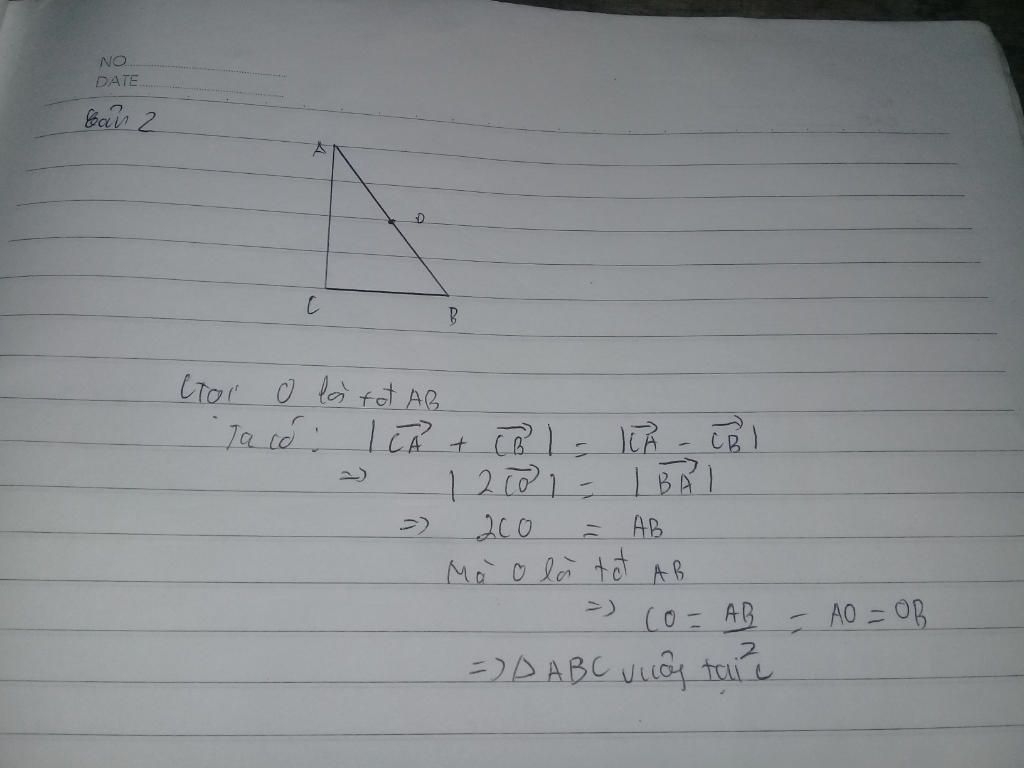 NO
DATE
Bài 2
A
O
C
B
Gọi O là tđ AB
Ta có: |CA→ + CB→| = |CA→ - CB→|
=> |2CO→| = |BA→|
=> 2CO = AB
Mà O là tđ AB
=> CO = AB/2 = AO = OB
=> Δ ABC vuông tại C